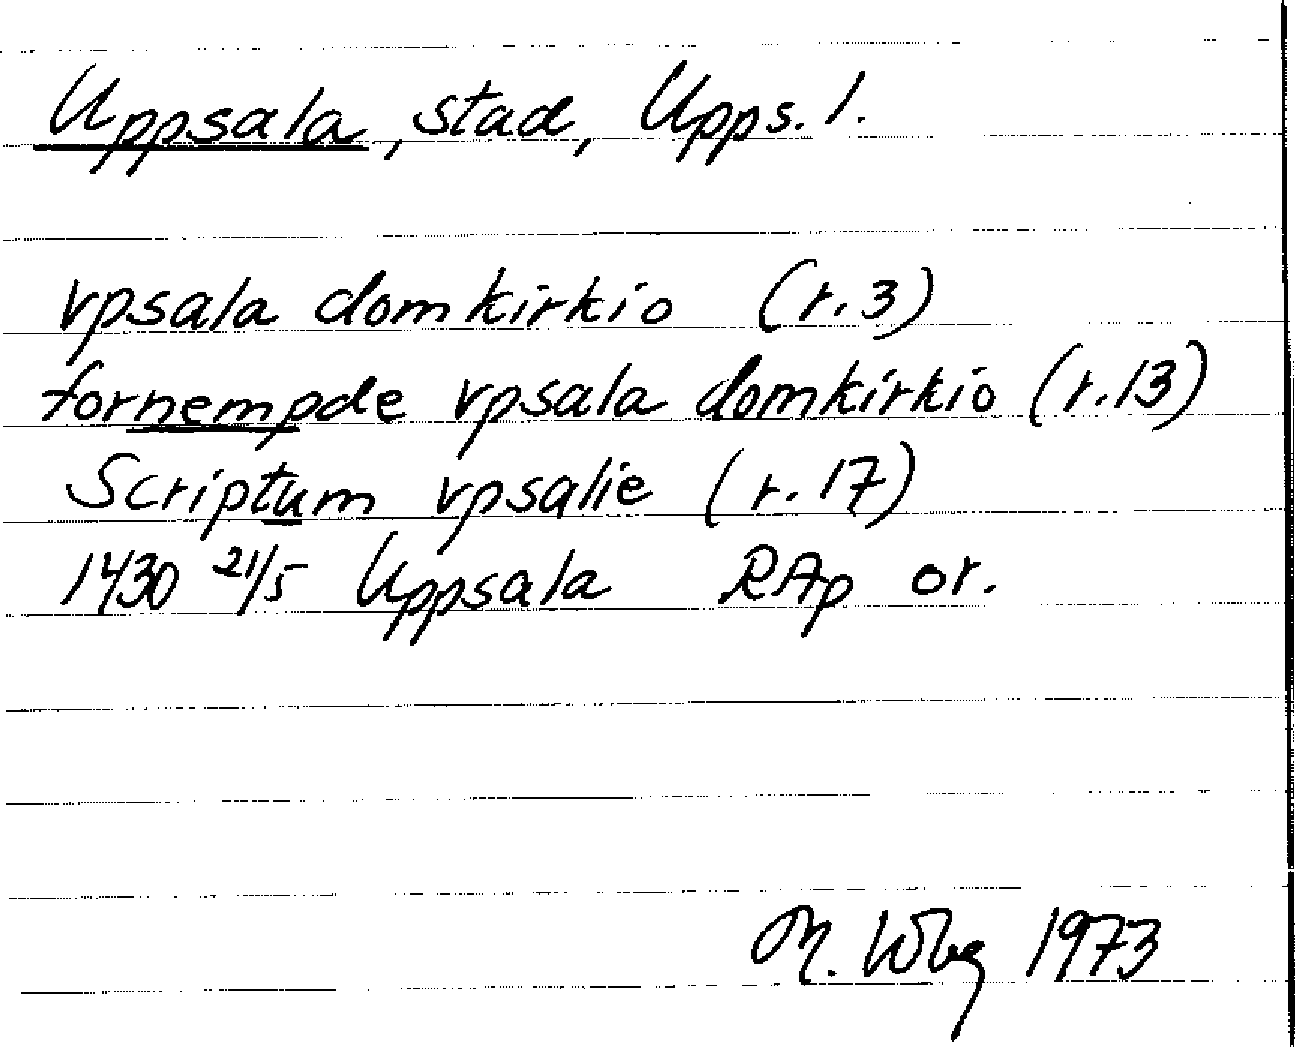 Uppsala, stad, Upps. l.
vpsala domkirkio (r.3)
fornempde vpsala domkirkio (r.13)
Scriptum vpsalie (r.17)
1430 21/5 Uppsala RAp or.
M. Wbg 1973